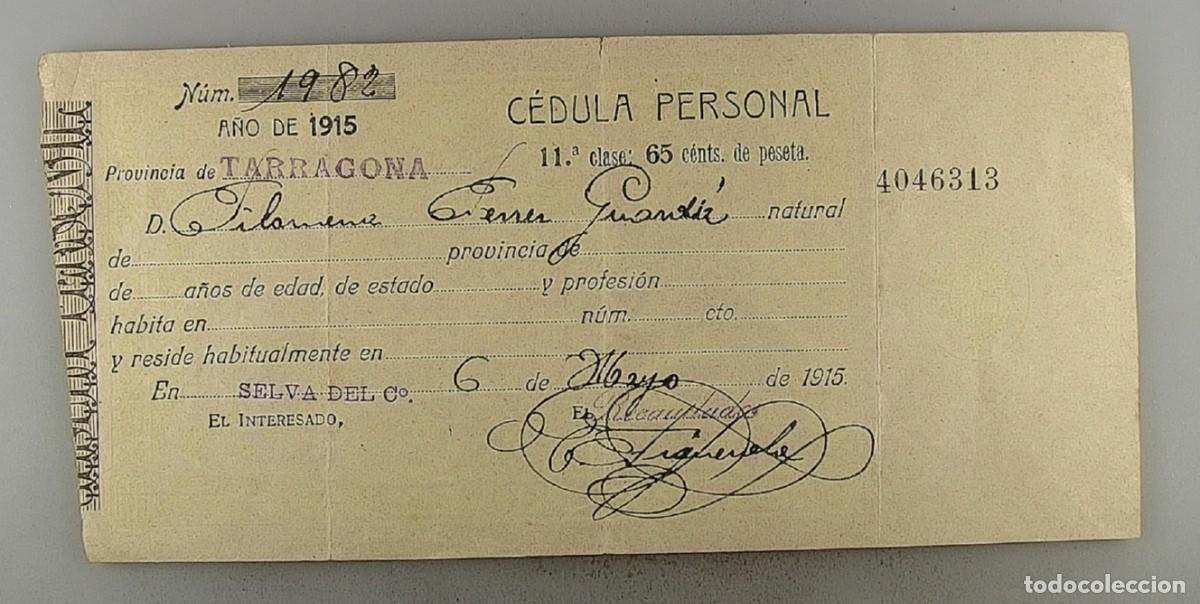 Núm. 1982
AÑO DE 1915
CÉDULA PERSONAL
Provincia de TARRAGONA
11.ª clase: 65 cénts. de peseta.
4046313
D. Filomena Ferrer Guardiá natural
de provincia de
de años de edad, de estado y profesión
habita en núm. cto.
y reside habitualmente en
En SELVA DEL Cº. 6 de Mayo de 1915.
EL INTERESADO,
EL Recaudador
todocoleccion